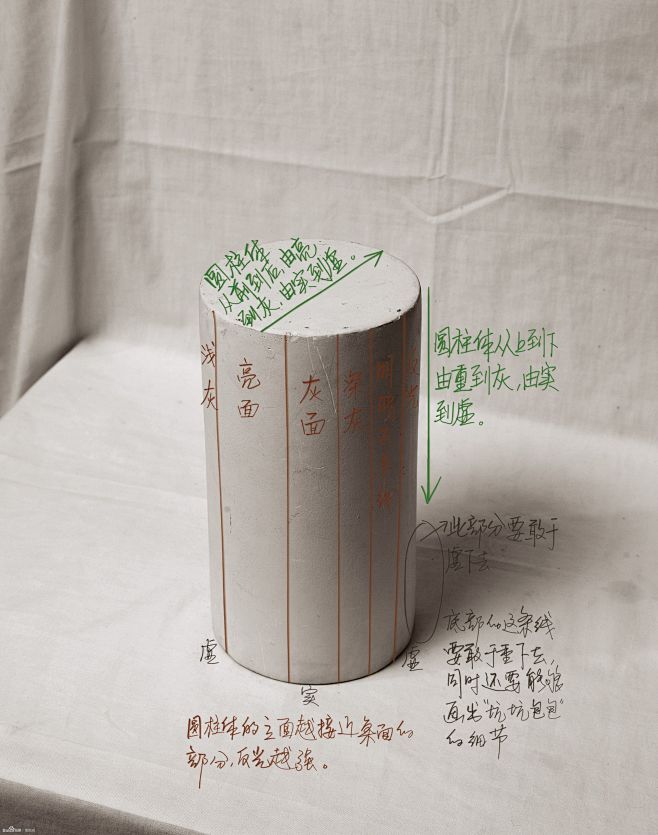 圆柱体
从前到后,由亮
到灰,由实到虚。
浅灰
亮面
灰面
深灰
明暗交界线
反光
圆柱体从上到下
由重到灰,由实
到虚。
此部分要敢于
虚下去
底部的这条线
要敢于重下去,
同时还要能够
画出“坑坑包包”
的细节
虚
实
虚
圆柱体的立面越接近桌面的
部分,反光越强。